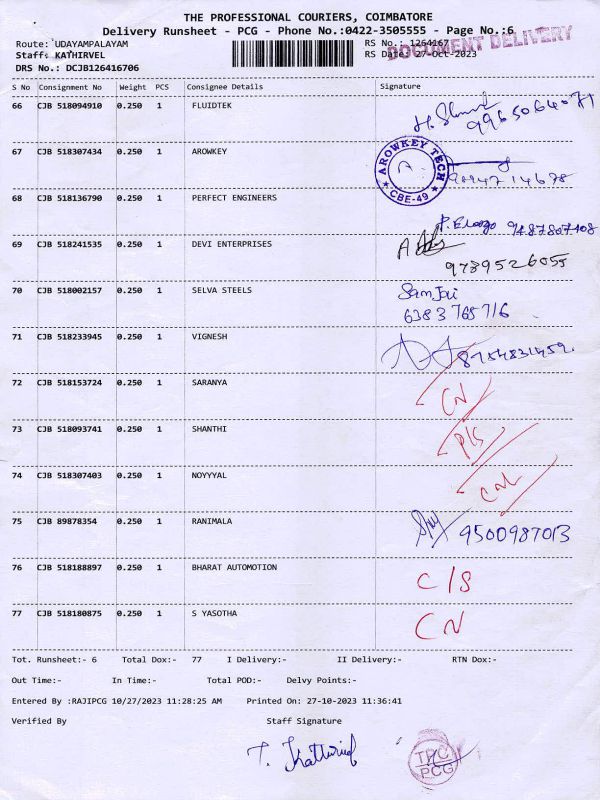 THE PROFESSIONAL COURIERS, COIMBATORE
Delivery Runsheet - PCG - Phone No.:0422-3505555 - Page No.:6
Route: UDAYAMPALAYAM RS No.: 1264167
DOCUMENT DELIVERY
Staff: KATHIRVEL RS Date: 27-Oct-2023
DRS No.: DCJB126416706
S No Consignment No Weight PCS Consignee Details Signature
66 CJB 518094910 0.250 1 FLUIDTEK
9965064071
67 CJB 518307434 0.250 1 AROWKEY
AROWKEY TECH
CBE-49
68 CJB 518136790 0.250 1 PERFECT ENGINEERS
69 CJB 518241535 0.250 1 DEVI ENTERPRISES
9789526055
70 CJB 518002157 0.250 1 SELVA STEELS
Sanjai
6383765716
71 CJB 518233945 0.250 1 VIGNESH
8754831459.
72 CJB 518153724 0.250 1 SARANYA
CN
73 CJB 518093741 0.250 1 SHANTHI
74 CJB 518307403 0.250 1 NOYYYAL
75 CJB 89878354 0.250 1 RANIMALA
9500987013
76 CJB 518188897 0.250 1 BHARAT AUTOMOTION
C/S
77 CJB 518180875 0.250 1 S YASOTHA
CN
Tot. Runsheet:- 6 Total Dox:- 77 I Delivery:- II Delivery:- RTN Dox:-
Out Time:- In Time:- Total POD:- Delvy Points:-
Entered By :RAJIPCG 10/27/2023 11:28:25 AM Printed On: 27-10-2023 11:36:41
Verified By Staff Signature
TPC
PCG